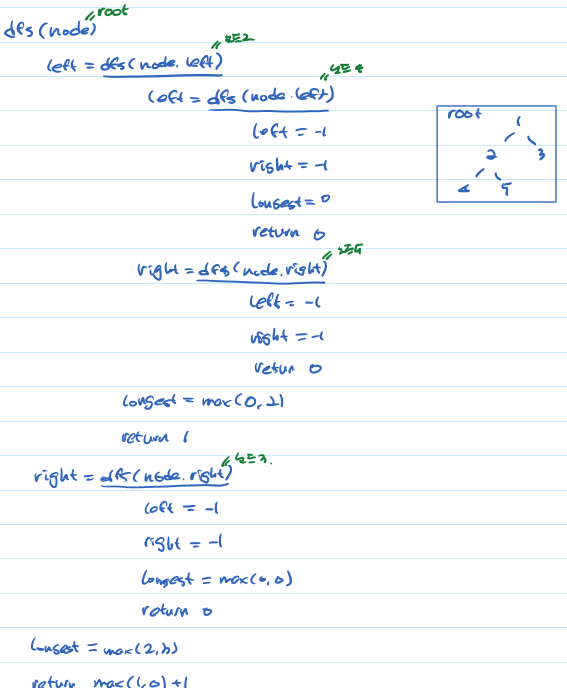 dfs(node) // root
left = dfs(node.left) // 노드2
left = dfs(node.left) // 노드4
left = -1
right = -1
longest = 0
return 0
right = dfs(node.right) // 노드5
left = -1
right = -1
return 0
longest = max(0, 2)
return 1
right = dfs(node.right) // 노드3.
left = -1
right = -1
longest = max(0, 0)
return 0
longest = max(2, 3)
return max(1, 0) + 1
root
1
2 3
4 5